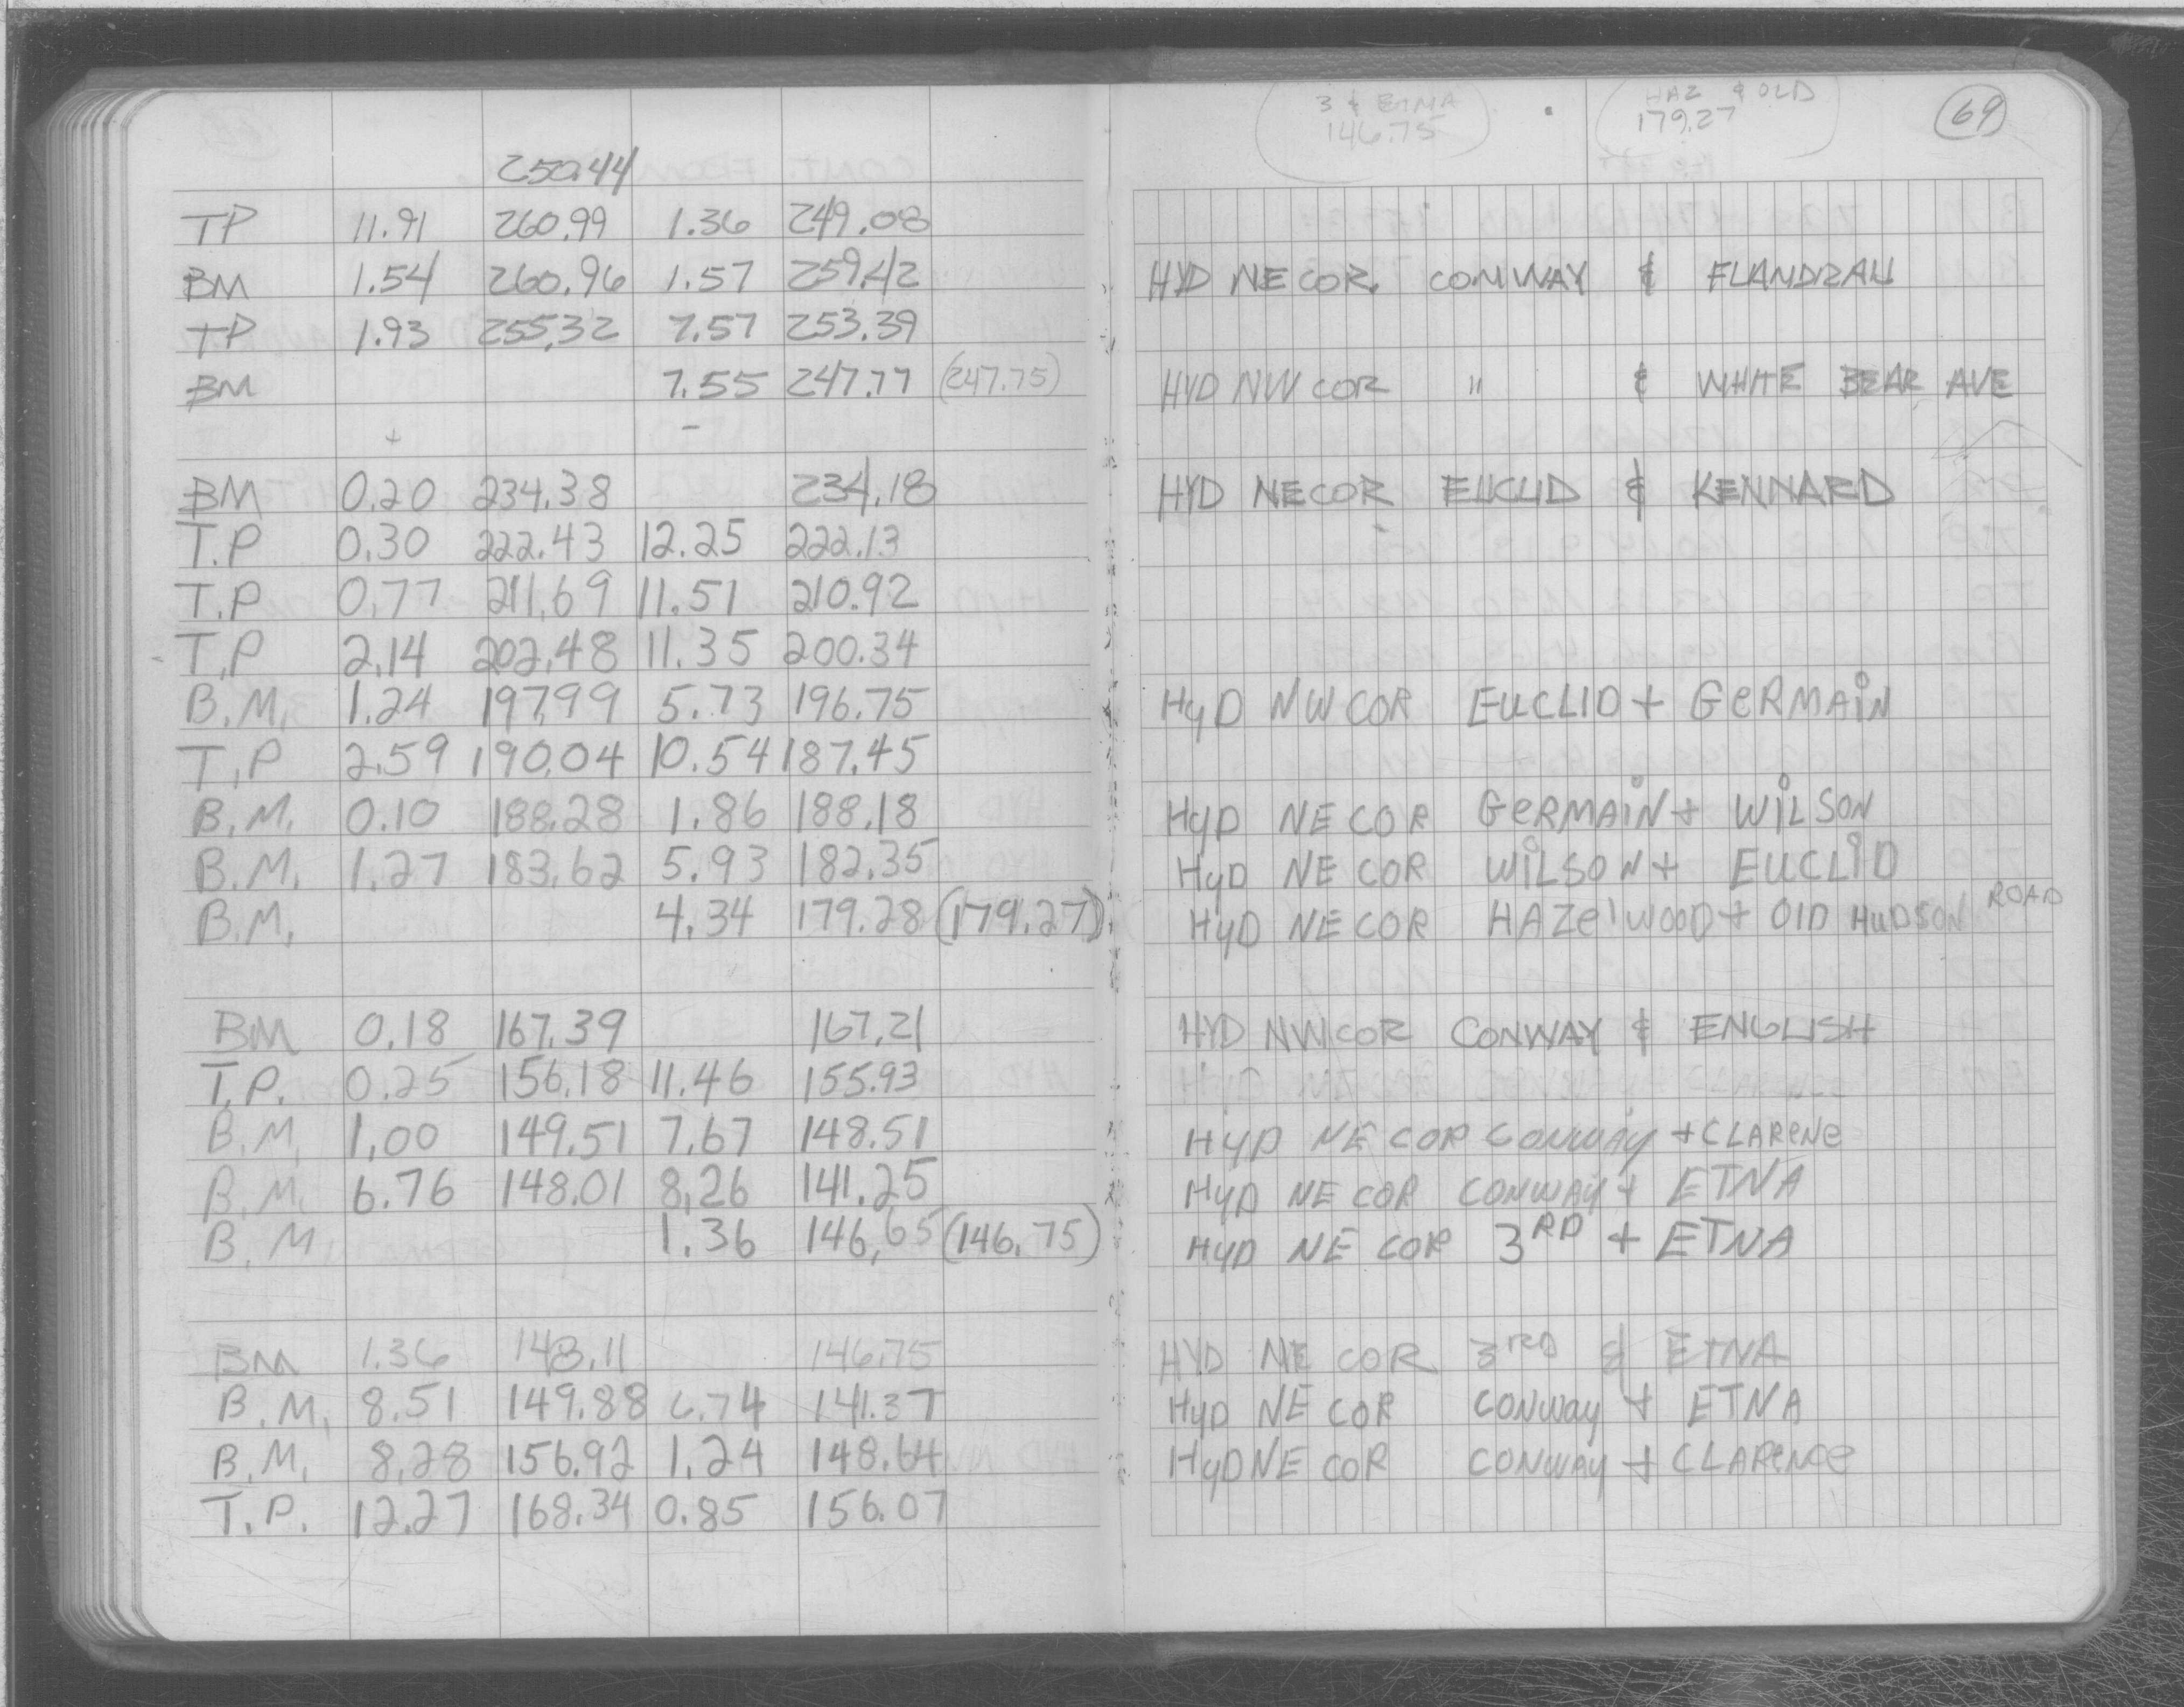 3 & ETNA HAZ & OLD 69
146.75 179.27
250.44
TP 11.91 260.99 1.36 249.08
BM 1.54 260.96 1.57 259.42 HYD NE COR. CONWAY & FLANDRAU
TP 1.93 255.32 7.57 253.39
BM 7.55 247.77 (247.75) HYD NW COR " & WHITE BEAR AVE
+ -
BM 0.20 234.38 234.18 HYD NE COR EUCLID & KENNARD
T.P 0.30 222.43 12.25 222.13
T.P 0.77 211.69 11.51 210.92
T.P 2.14 202.48 11.35 200.34
B.M. 1.24 197.99 5.73 196.75 HyD NW COR EUCLID + GeRMAiN
T.P 2.59 190.04 10.54 187.45
B.M. 0.10 188.28 1.86 188.18 HyD NE COR GeRMAiN + WiLSON
B.M. 1.27 183.62 5.93 182.35 HyD NE COR WiLSON + EUCLiD
B.M. 4.34 179.28 (179.27) HyD NE COR HAZelwOOD + OlD HUDSON ROAD
BM 0.18 167.39 167.21 HYD NW COR CONWAY & ENGLISH
T.P. 0.25 156.18 11.46 155.93
B.M. 1.00 149.51 7.67 148.51 HyD NE COR CONWAy + CLAReNe
B.M. 6.76 148.01 8.26 141.25 HyD NE COR CONWAy + ETNA
B.M. 1.36 146.65 (146.75) HyD NE COR 3RD + ETNA
BM 1.36 148.11 146.75 HYD NE COR 3RD & ETNA
B.M. 8.51 149.88 6.74 141.37 HyD NE COR CONWay + ETNA
B.M. 8.28 156.92 1.24 148.64 HyD NE COR CONWay + CLAReNCe
T.P. 12.27 168.34 0.85 156.07